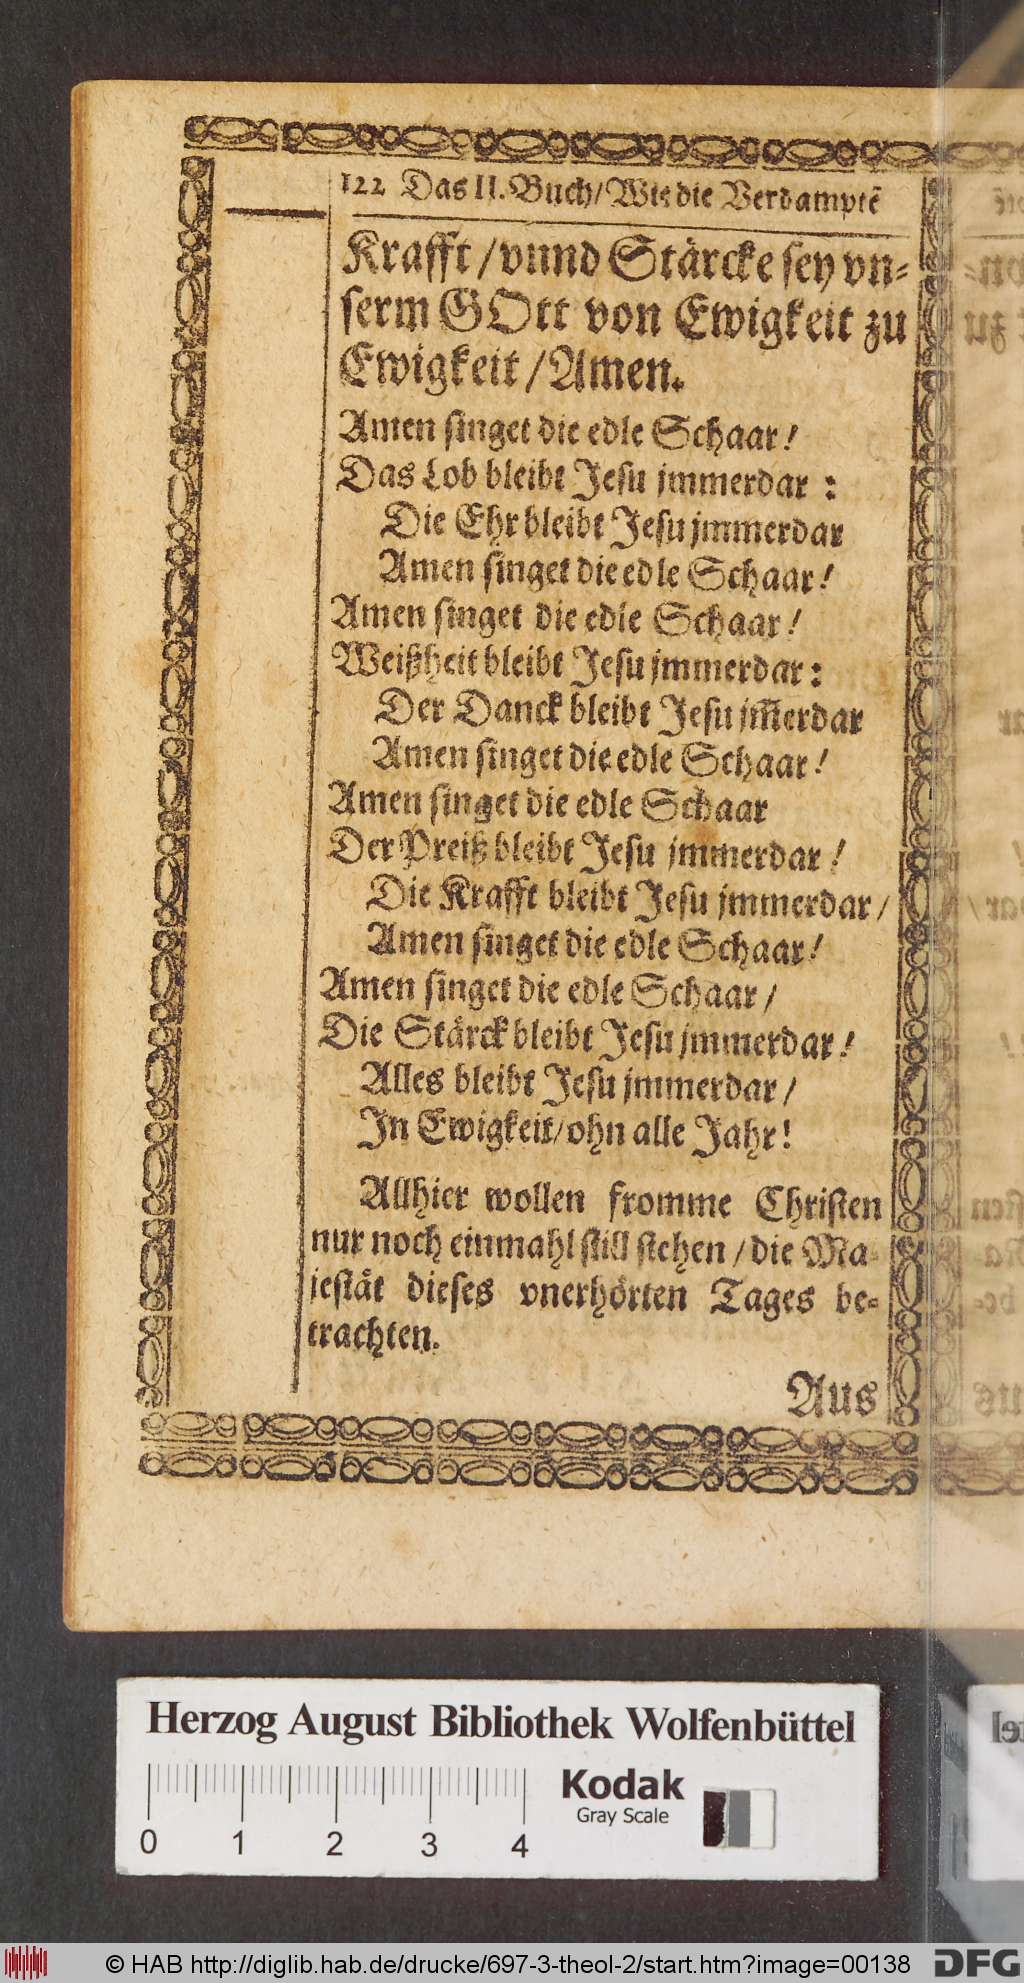 122 Das II. Buch/ Wie die Verdamptẽ
Krafft / vnnd Stärcke sey vn⸗
serm GOtt von Ewigkeit zu
Ewigkeit / Amen.
Amen singet die edle Schaar!
Das Lob bleibt Jesu jmmerdar :
Die Ehr bleibt Jesu jmmerdar
Amen singet die edle Schaar!
Amen singet die edle Schaar!
Weißheit bleibt Jesu jmmerdar:
Der Danck bleibt Jesu jm̃erdar
Amen singet die edle Schaar!
Amen singet die edle Schaar
Der Preiß bleibt Jesu jmmerdar!
Die Krafft bleibt Jesu jmmerdar/
Amen singet die edle Schaar!
Amen singet die edle Schaar/
Die Stärck bleibt Jesu jmmerdar!
Alles bleibt Jesu jmmerdar/
In Ewigkeit/ ohn alle Jahr!
Allhier wollen fromme Christen
nur noch einmahl still stehen / die Ma⸗
jestät dieses vnerhörten Tages be⸗
trachten.
Aus
Herzog August Bibliothek Wolfenbüttel
Kodak
Gray Scale
0 1 2 3 4
© HAB http://diglib.hab.de/drucke/697-3-theol-2/start.htm?image=00138
DFG